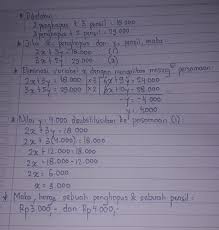 * Diketahui
2 penghapus + 3 pensil = 18.000
3 penghapus + 5 pensil = 29.000
* Jika x penghapus dan y pensil, maka:
2x + 3y = 18.000 (1)
3x + 5y = 29.000 (2)
* Eliminasi variabel x dengan mengalikan masing² persamaan:
2x + 3y = 18.000 | ×3 | 6x + 9y = 54.000
3x + 5y = 29.000 | ×2 | 6x + 10y = 58.000
-y = -4.000
y = 4.000
* Nilai y = 4.000 disubstitusikan ke persamaan (1):
2x + 3y = 18.000
2x + 3(4.000) = 18.000
2x + 12.000 = 18.000
2x = 18.000 - 12.000
2x = 6.000
x = 3.000
* Maka, harga sebuah penghapus & sebuah pensil:
Rp3.000,- dan Rp4.000,-